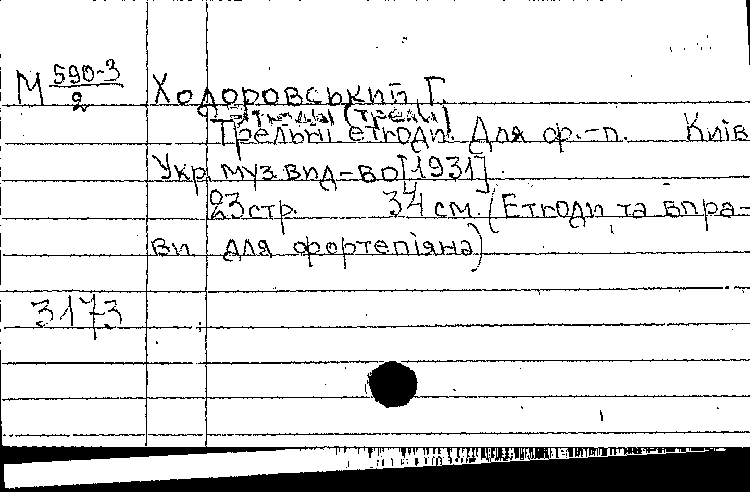 М 590-3/2 Ходоровський, Г.
Этюды (трели)
Трельні етюди. Для ф.-п. Київ
Укр. муз. вид-во [1931]
23 стр. 34 см. (Етюди та впра-
ви для фортепіяна)
3173